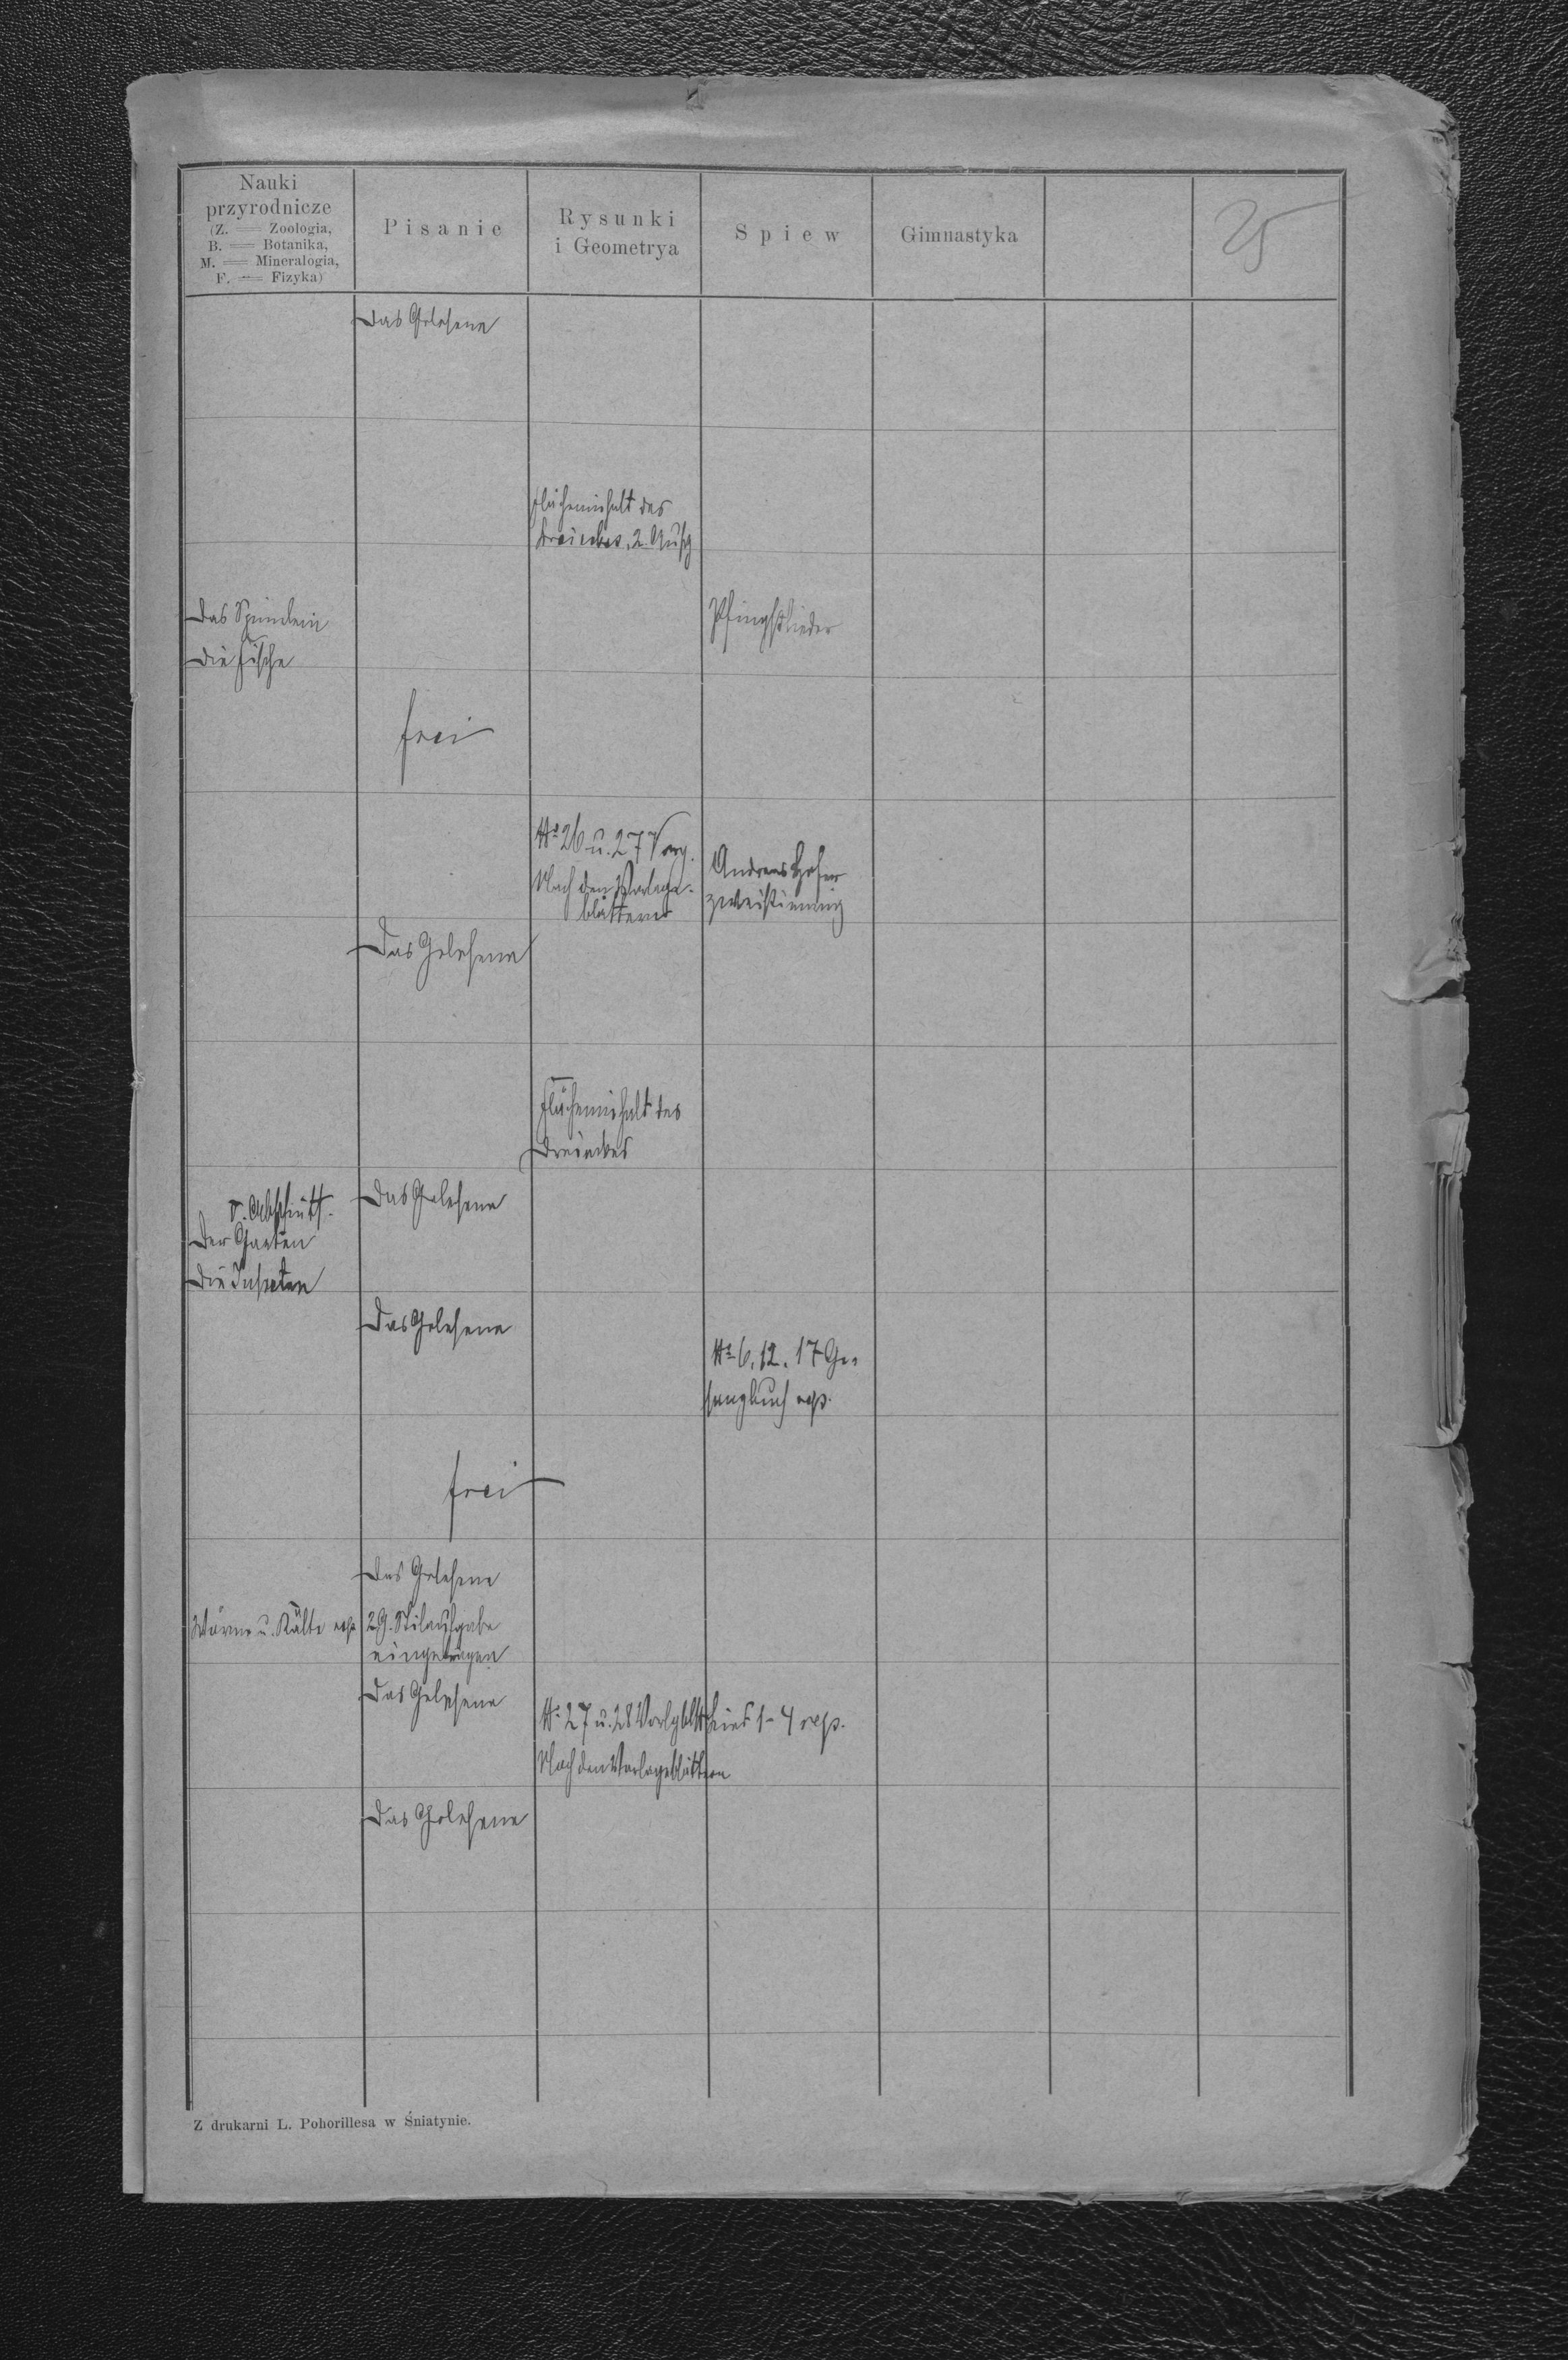 Nauki
przyrodnicze
(Z. = Zoologia,
B. = Botanika,
M. = Mineralogia,
F. = Fizyka)
Pisanie
Rysunki
i Geometrya
Spiew
Gimnastyka
25
Das Gelesene
Flächeninhalt des
Dreieckes, 2. Aufg
Das
Die Fische
Pfingstlieder
frei
No 26 u. 27 Vorg.
Nach den Vorlage-
blättern
Andreas Hofer
zweistimmig
Das Gelesene
Flächeninhalt des
Dreieckes
V. Abschnitt.
Der Garten
Die Insekten
Das Gelesene
Das Gelesene
No 6, 12, 17 Ge-
sangbuch rep.
frei
Das Gelesene
Wärme u. Kälte rep.
2 G. Stilaufgabe
eingetragen
Das Gelesene
No 27 u. 28 Vorlgbltt
Nach den Vorlageblättern
Lied 1-4 rep.
Das Gelesene
Z drukarni L. Pohorillesa w Śniatynie.